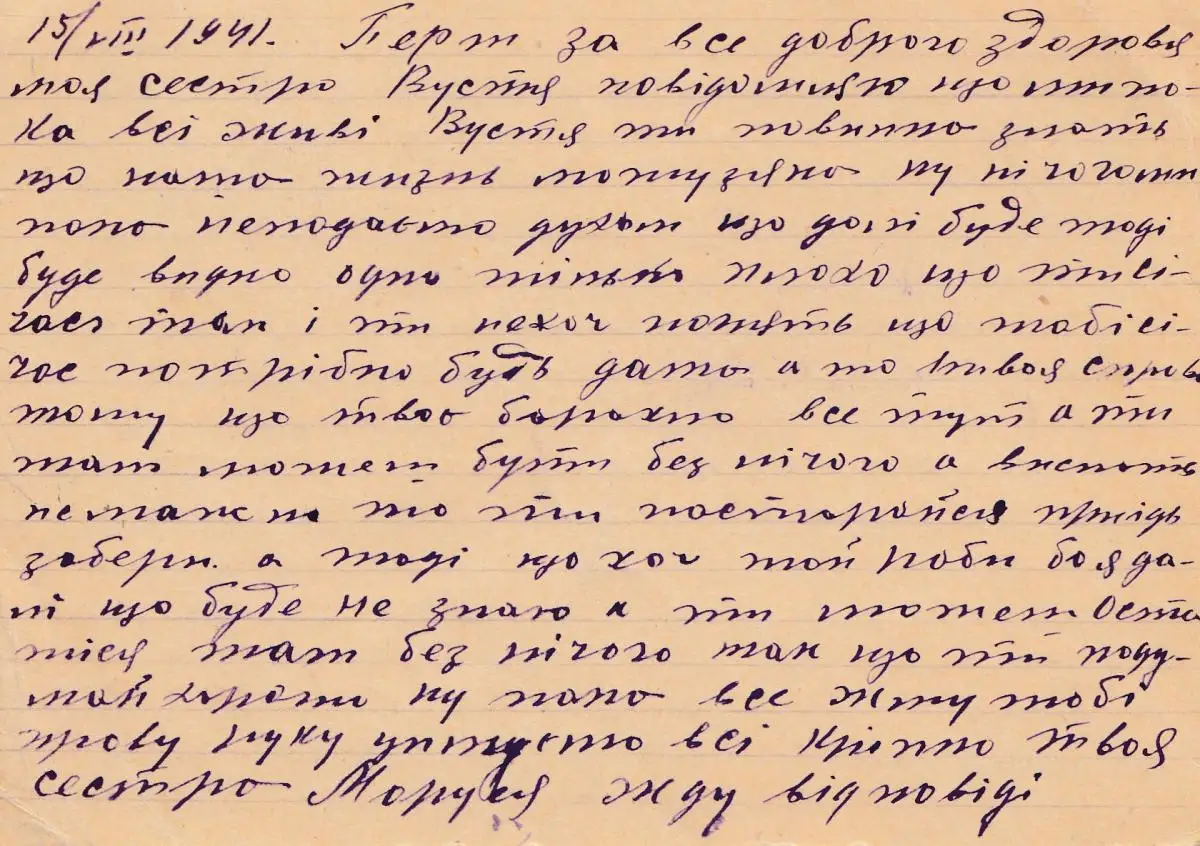 15/VIII 1941. Перш за все доброго здоровя
моя сестро Вустя повідомляю що ми по-
ка всі живі Вустя ти повинна знать
що наша жизнь ну нічого ми
пока неподаємо духом що далі буде тоді
буде видно одно тільки плохо що ти сі-
час там і ти нехоч понять що тобі сі-
час потрібно буть дома а то твоя справ
тому що твоє борохло все тут а ти
там можеш бути без нічого а вислать
не можно то ти постарайся приїдь
забери. а тоді що хоч той роби бо я да-
лі що буде не знаю а ти можеш Оста
тися там без нічого так що ти поду-
май хорош ну пока все жму тобі
праву руку цілуємо всі кріпко твоя
сестра Маруся жду відповіді